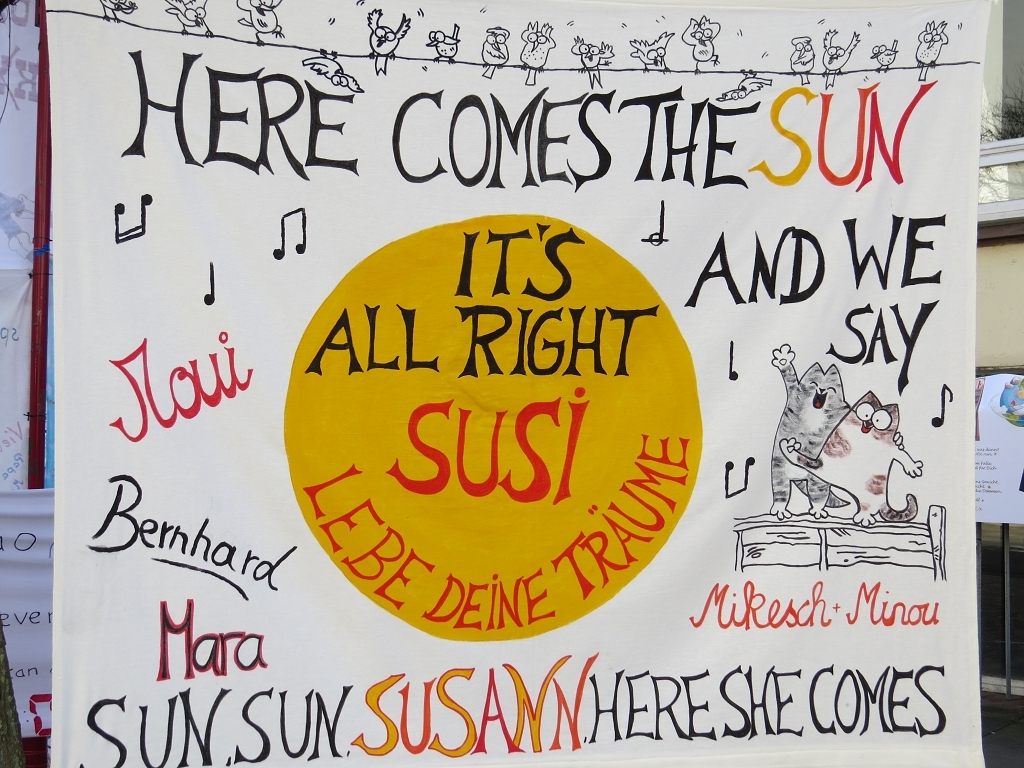 HERE COMES THE SUN
AND WE
SAY
IT'S
ALL RIGHT
SUSI
LEBE DEINE TRÄUME
Bernhard
Mara
Mikesch + Minou
SUN, SUN, SUSANN, HERE SHE COMES